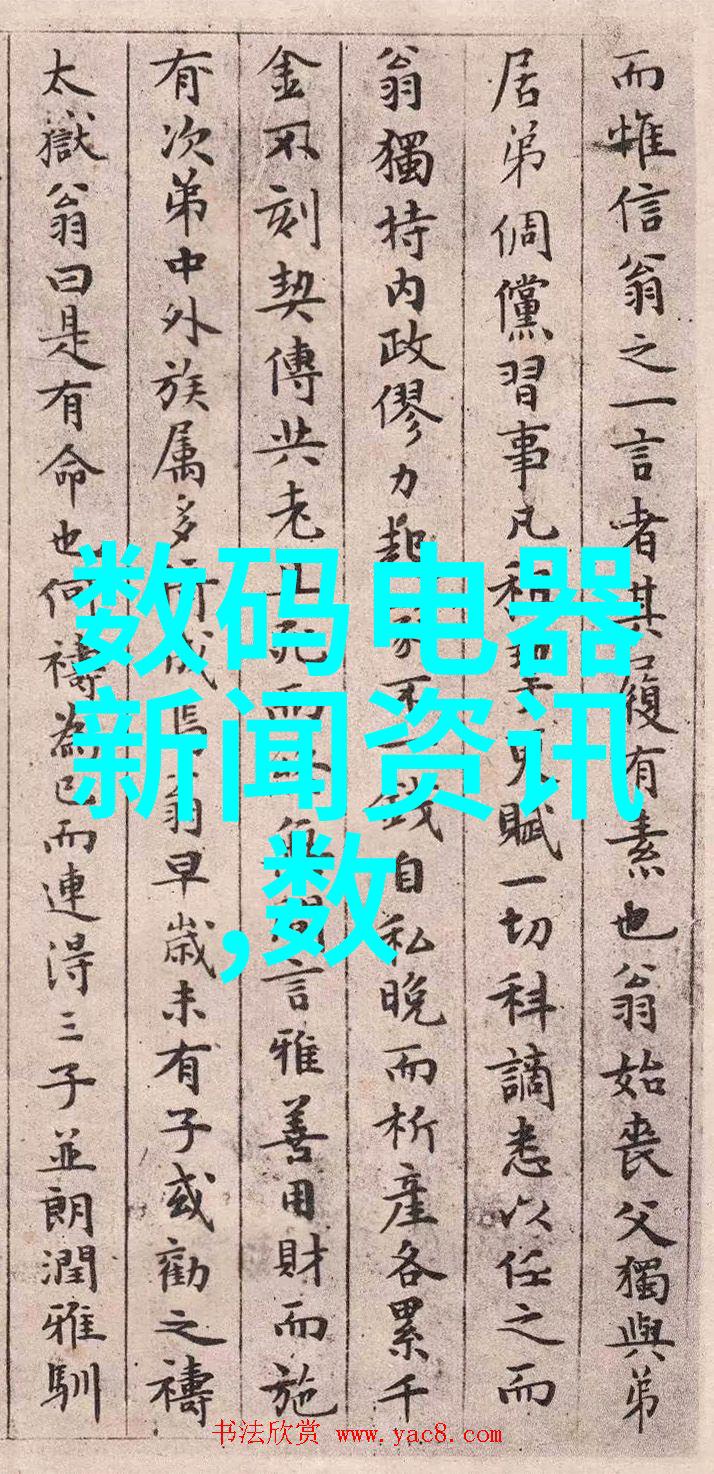 而惟信翁之一言者其履有素也翁始喪父獨與弟
居弟倜儻習事凡賦一切科謫悉以任之而
翁獨持内政僇力起不錢自私晚而析產各累千
金不刻契傳共老而言雅善用財而施
有次弟中外族属多翁早歲未有子或勸之禱
太獄翁曰是有命也何禱為已而連得三子並朗潤雅馴
数码电器
新闻资讯
,数
书法欣赏 www.yac8.com